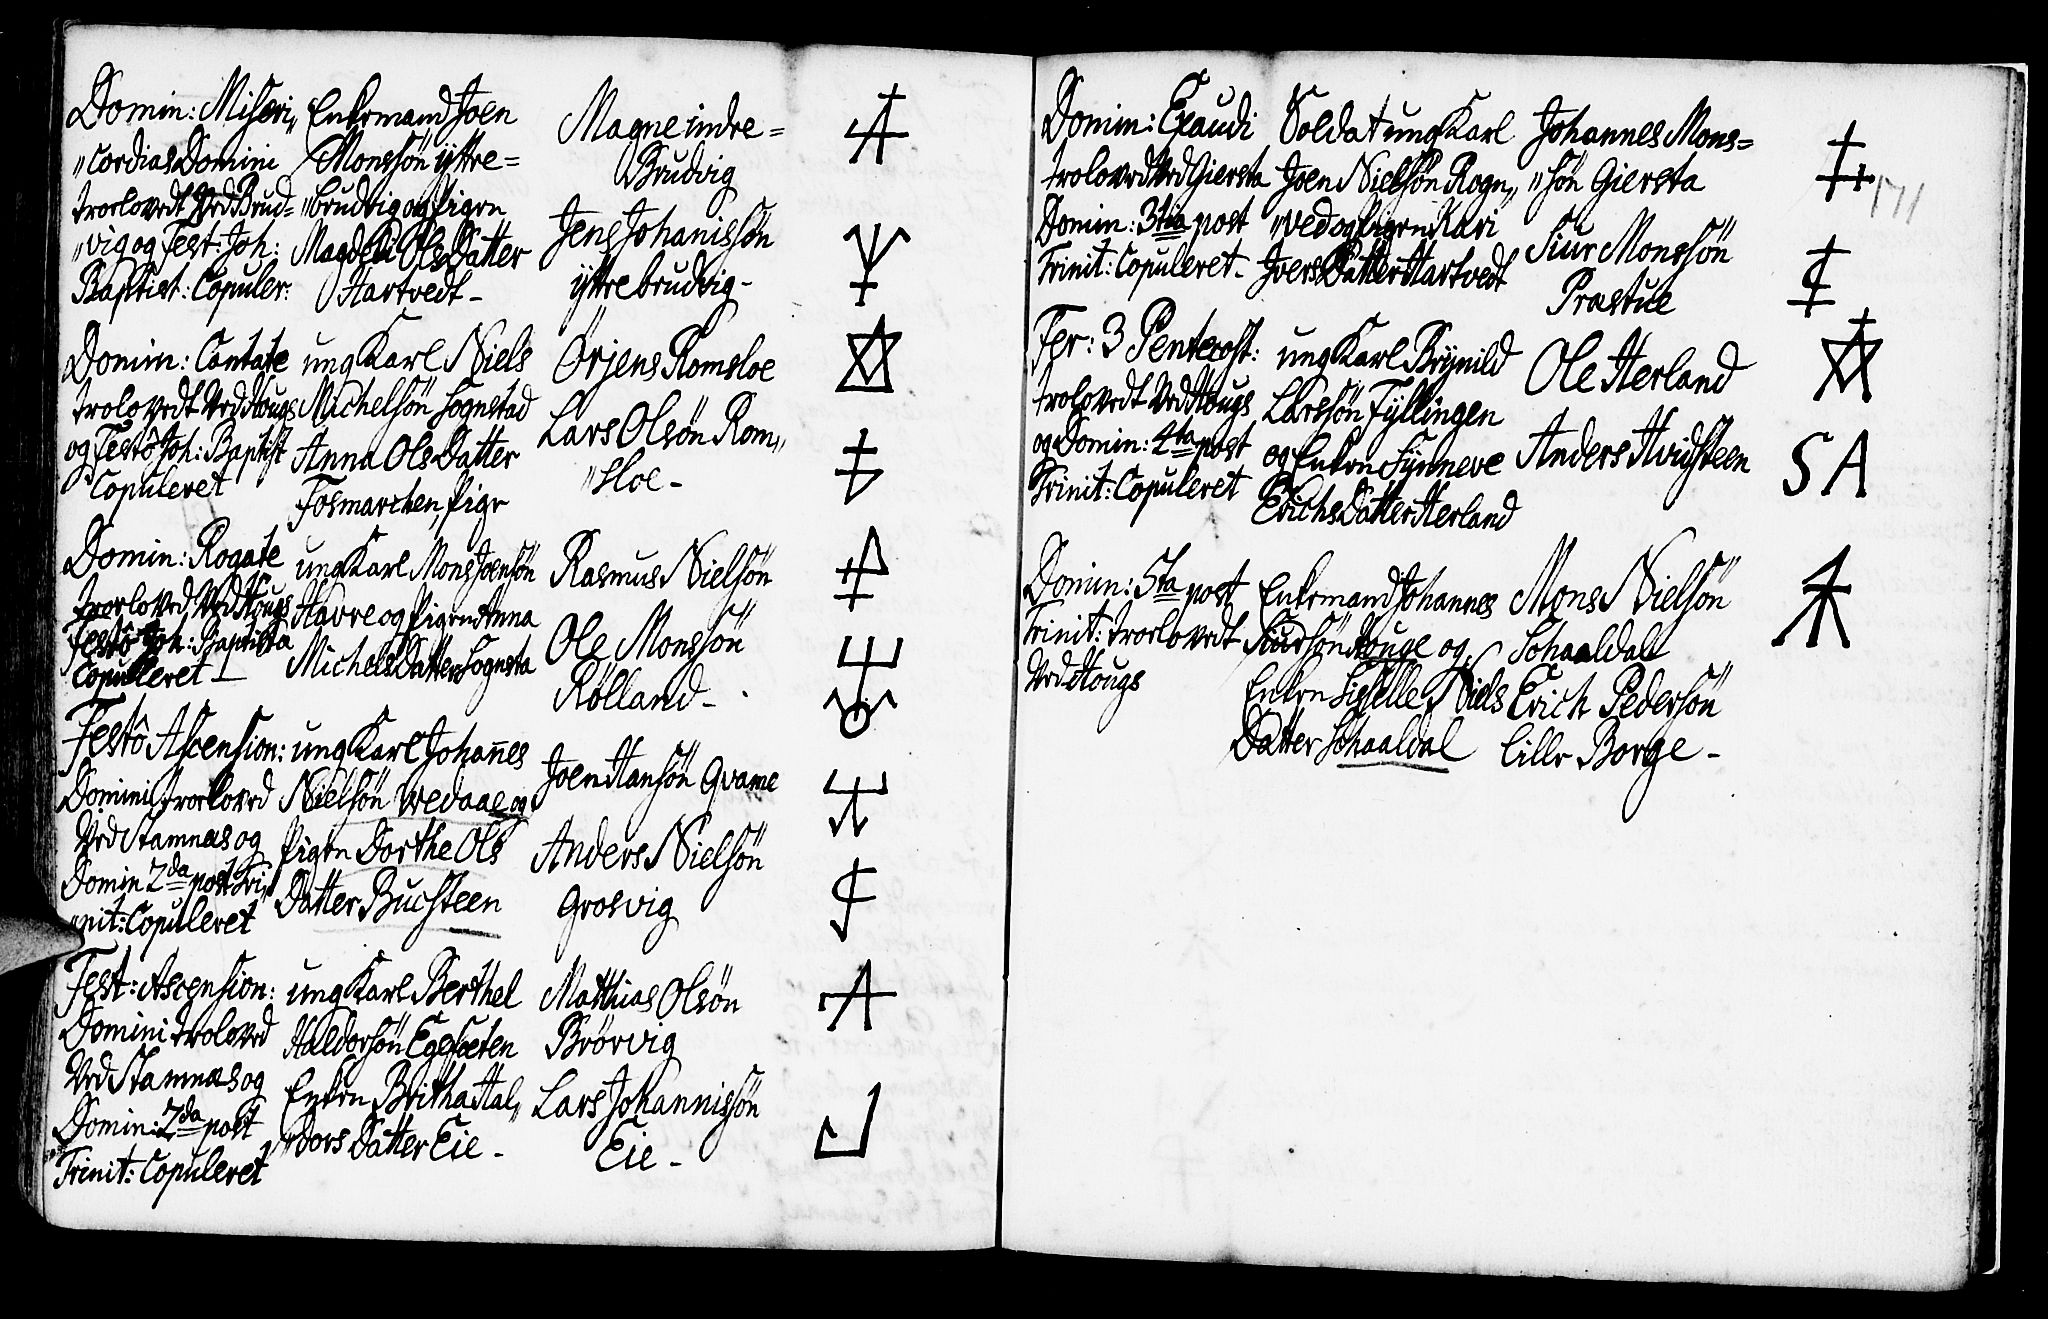 Domin: Miseri„
„cordias Domini
troelovedt Ved Brud=
„vig og Fest: Joh:
Baptist: Copuler:
Enkemand Joen
Monssön ÿttre=
„brudvig og Pigen
Magdeli Ols Datter
Hartvedt -
Magne indre=
Brudvig
Jens Johanissön
ÿttrebrudvig -
Domin: Cantate
trolovedt Ved Hougs
og Festô Joh: Baptist
Copuleret
ung Karl Niels
Michelsön Sognstad
Anna Ols Datter
Fosmarchen, Pige
Örjens Romsloe
Lars Olsön Rom„
„sloe -
Domin: Rogate
troeloved Ved Hougs
Festô Joh: Baptista
Copulleret -
ung Karl Mons Joensön
Havre og Pigen Anna
Michels Datter Sognsta
Rasmus Nielsön
Ole Monssön
Rølland -
Festô Ascension:
Domini troeloved
Ved Stamnæs og
Domin 2da post Tri„
„nit: Copuleret
ung Karl Johan̄es
Nielsön Wedaae og
Pigen Dorthe Ols
Datter Bucksteen
Joen Hansön Qvame
Anders Nielsön
Grosvig
Fest: Ascension:
Domini troloved
Ved Stamnæs og
Domin: 2da post
Trinit: Copuleret
ung Karl Berthel
Haldorsön Egesæten
Enken Britha Hal„
„dors Datter Eie -
Matthias Olsön
Brörvig
Lars Johannissön
Eie -
Domin: Exaudi
troloved Ved Giersta
Domin: 3tia post
Trinit: Copuleret -
Soldat ung Karl
Joen Nielsön Rogn„
„ved og Pigen Kari
Joers Datter Hartvedt
Johannes Mons=
„sön Giersta
Siur Monssön
Præstue
171
Fer: 3 Pentecost:
trolovedt Ved Hougs
og Domin: 4ta post
Trinit: Copuleret
ung Karl Brÿnild
Larssön Fÿllingen
og Enken Sÿnneve
Erichs Datter Herland
Ole Herland
Anders Hvidsteen
S A
Domin: 5ta post
Trinit: troelovedt
Ved Hougs
Enkemand Johannes
Siursön Houge og
Enken Sisselle Niels
Datter Schaaldal
Mons Nielsön
Schaaldal
Erich Pedersön
Lille Borge -